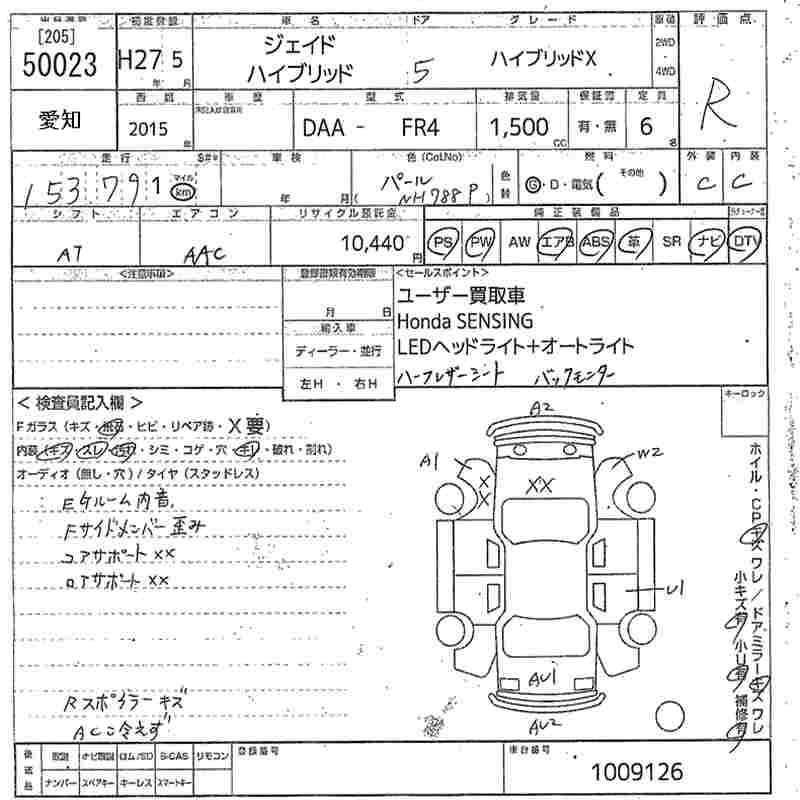 出品番号 初度登録 車名 ドア グレード 原動 評価点
[205]
50023
H27 5
年 月
ジェイド
ハイブリッド
5
ハイブリッドX
2WD
・
4WD
R
愛知
西暦 車歴 型式 排気量 保証書 定員
2015 年
DAA - FR4
1,500 cc
有・無
6 名
走行 車検 色(Col.No) 燃料 外装 内装
153,791
マイル
km
年 月
パール
(NH788P)
色替
G・D・電気( その他 )
C C
シフト エアコン リサイクル預託金 純正装備品
AT AAC 10,440 円
PS PW AW エアB ABS 革 SR ナビ DTV
<注意事項>
登録書類有効期限
月 日
輸入車
ディーラー・並行
左H ・ 右H
<セールスポイント>
ユーザー買取車
Honda SENSING
LEDヘッドライト+オートライト
ハーフレザーシート バックモニター
キーロック
< 検査員記入欄 >
Fガラス(キズ・飛石・ヒビ・リペア跡・X要)
内装(キズ・スレ・汚れ・シミ・コゲ・穴・キリ・破れ・割れ)
オーディオ(無し・穴)/タイヤ(スタッドレス)
Eケルーム内音、
Fサイドメンバー歪み
コアサポートXX
ロアサポートXX
Rスポイラーキズ
ACコ冷えず
A2
A1
W2
X
X
XX
U1
AU1
AU2
ホイル・CPキズ ワレ/ドアミラーキズ ワレ
小キズ有 小U有 補修有
後送品
取説 ナビ取説 ロム/SD B-CAS リモコン
ナンバー スペアキー キーレス スマートキー
登録番号
車台番号
1009126